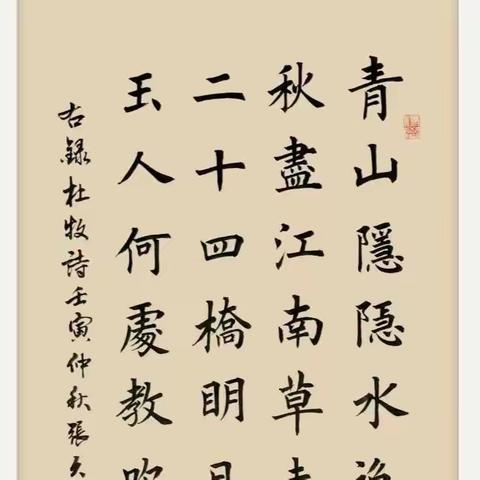 青山隱隱水
秋盡江南草
二十四橋明月
玉人何處教吹
右錄杜牧詩壬寅仲秋張